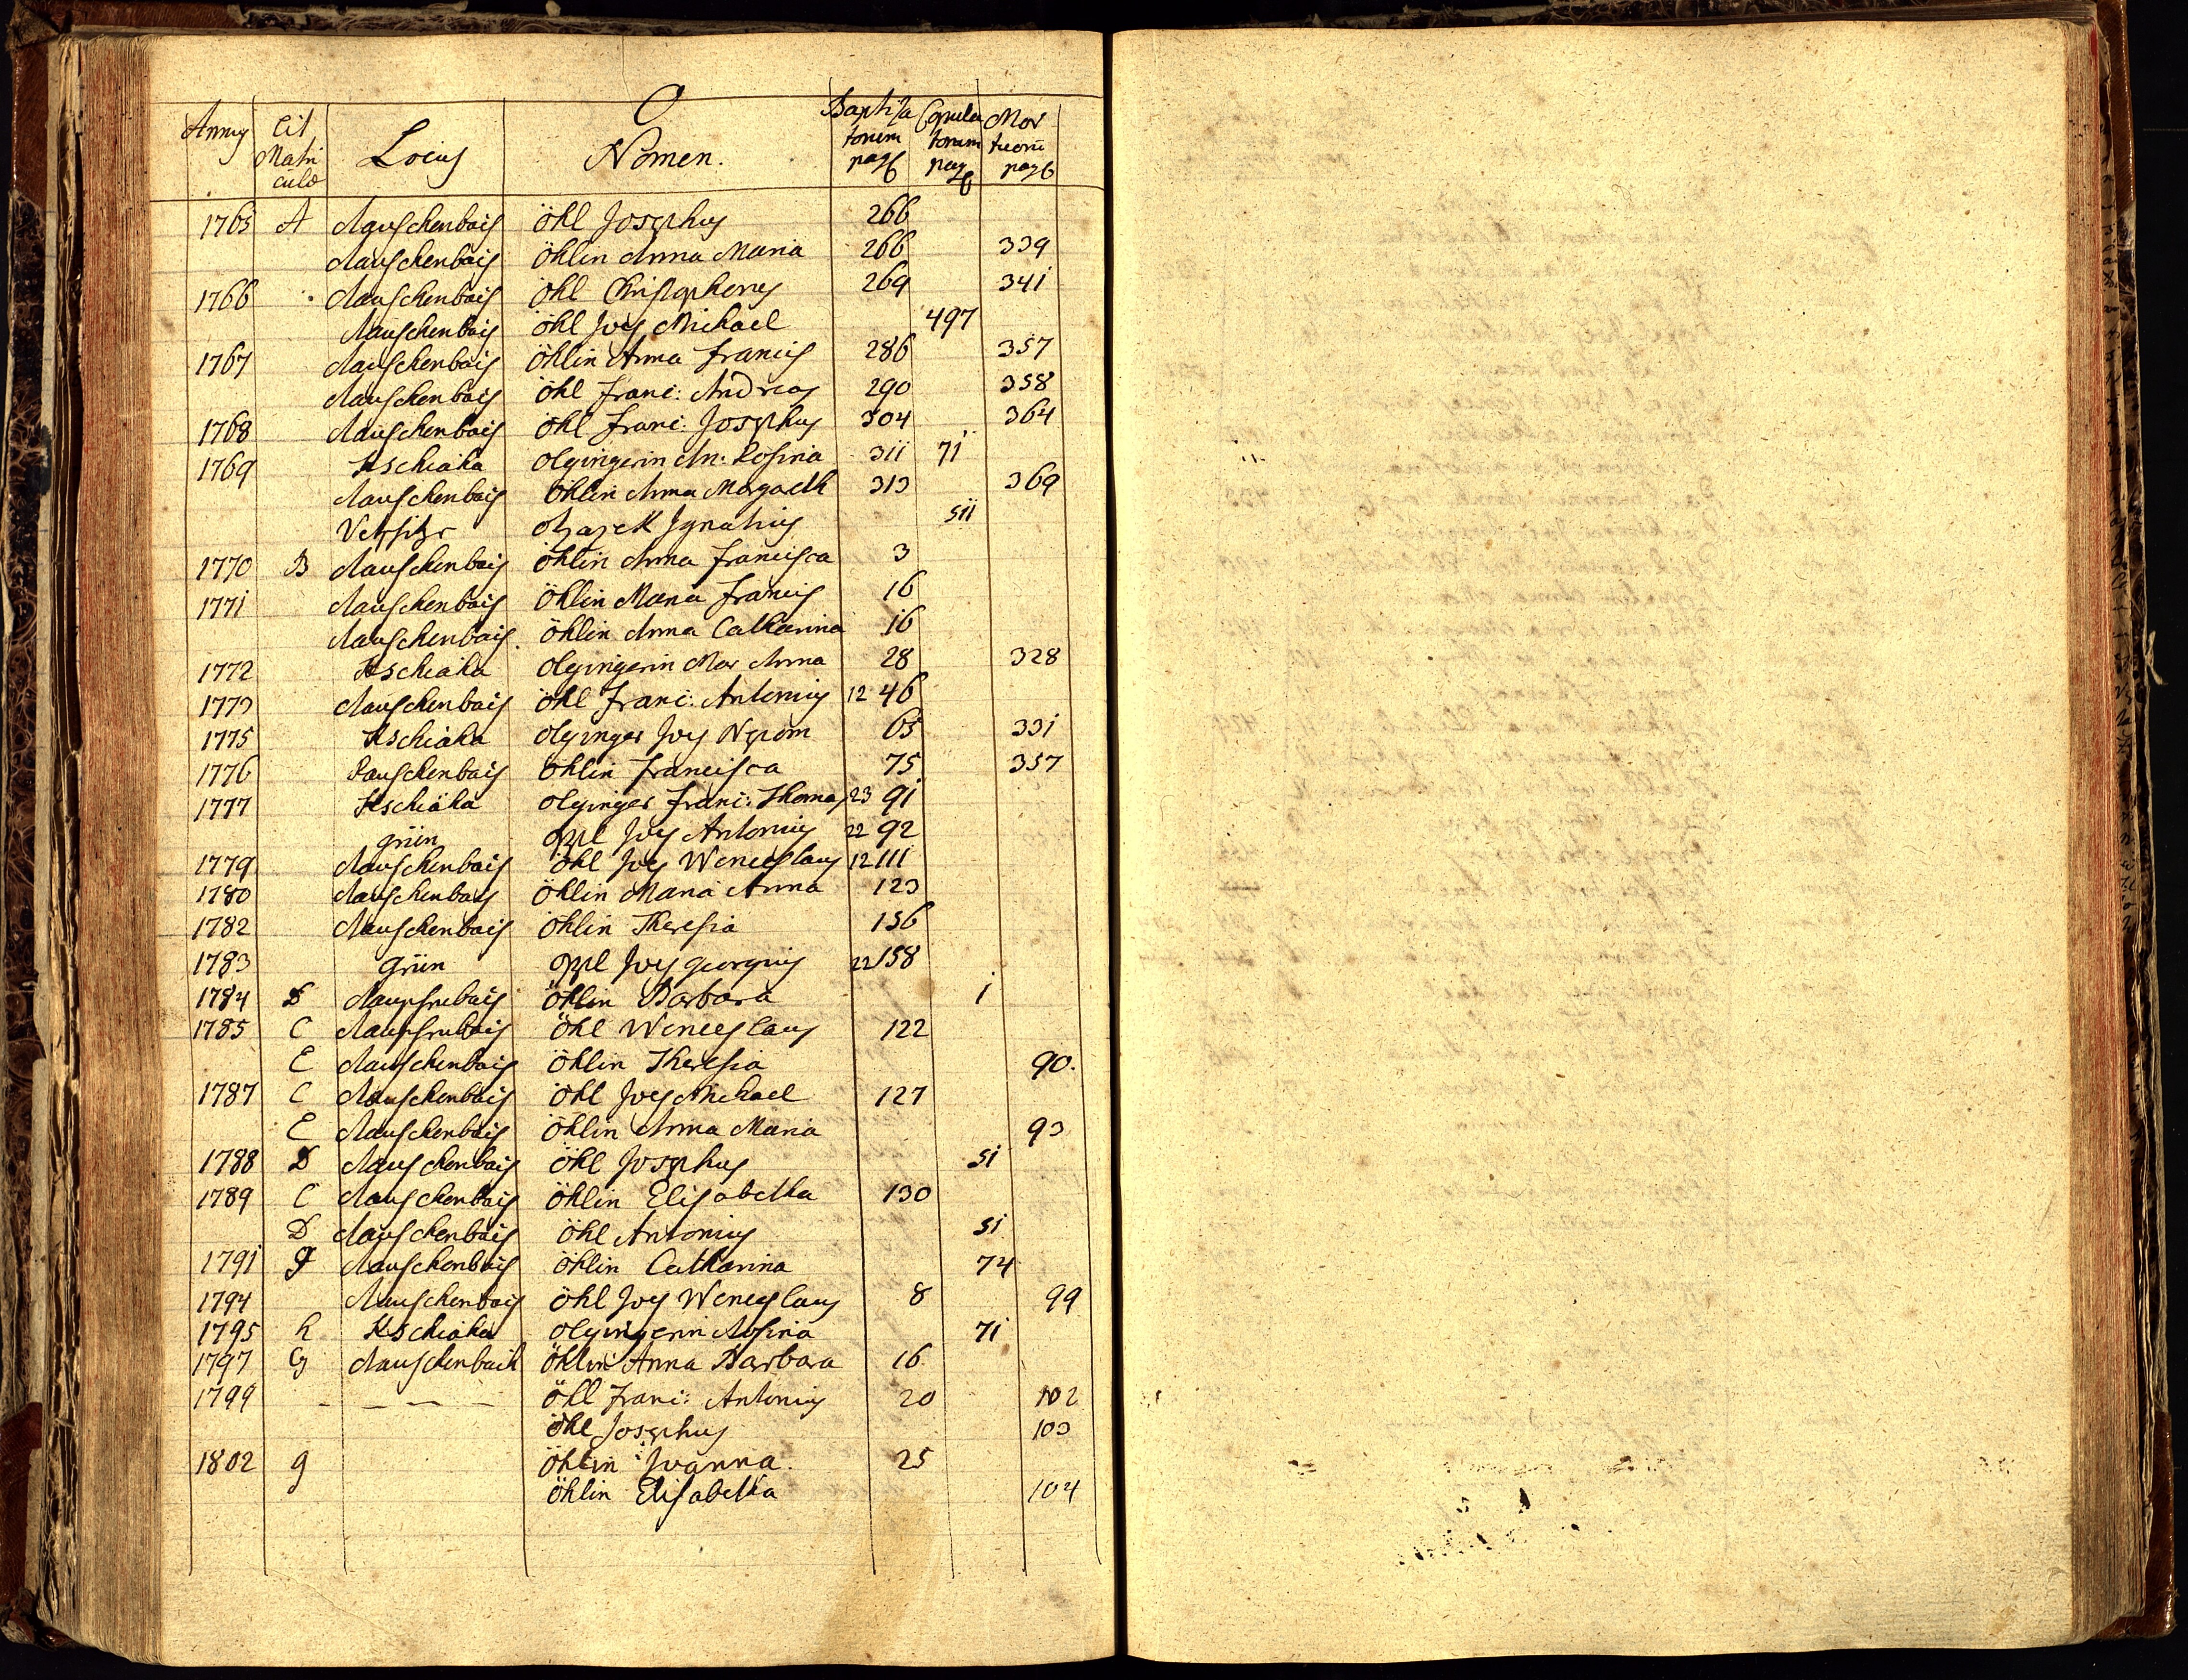 O
Annus Lit Matriculæ Locus Nomen. Baptisatorum pag Copulatorum pag Mortuorū pag
1765 A Rauschenbais Öhl Josephus 266
Rauschenbais Öhlin Anna Maria 266 339
1766 Rauschenbais Öhl Christophorus 269 341
Rauschenbais Öhl Joes Michael 497
1767 Rauschenbais Öhlin Anna Francis 286 357
Rauschenbais Öhl Franc: Andreas 290 358
1768 Rauschenbais Öhl Franc: Josephus 304 364
1769 Kschiaha Olgingerin An: Rosina 311 71
Rauschenbais Öhlin Anna Margareth 313 369
Ignatius 511
1770 B Rauschenbais Öhlin Anna Francisca 3
1771 Rauschenbais Öhlin Maria Francis 16
Rauschenbais. Öhlin Anna Catharina 16
1772 Kschiaha Olgingerin Mar Anna 28 328
1773 Rauschenbais Öhl Franc: Antonius 12 46
1775 Kschiaha Olginger Joes Nepom 65 331
1776 Rauschenbais Öhlin Francisca 75 357
1777 Kschiaha Olginger Franc: Thomas 23 91
Grün Oppl Joes Antonius 22 92
1779 Rauschenbais Öhl Joes Wenceslaus 12 111
1780 Rauschenbais Öhlin Maria Anna 123
1782 Rauschenbais Öhlin Theresia 156
1783 Grün Oppl Joes Georgius 22 158
1784 D Öhlin Barbara 1
1785 C Öhl Wenceslaus 122
E Rauschenbais Öhlin Theresia 90.
1787 C Rauschenbais Öhl Joes Michael 127
E Rauschenbais Öhlin Anna Maria 93
1788 D Rauschenbais Öhl Josephus 51
1789 C Rauschenbais Öhlin Elisabetha 130
D Rauschenbais Öhl Antonius 51
1791 F Rauschenbais Öhlin Catharina 74
1794 Rauschenbais Öhl Joes Wenceslaus 8 99
1795 h Kschiaha Olgingerin Rosina 71
1797 G Rauschenbach Öhlin Anna Barbara 16
1799 - - - - Öhl Franc: Antonius 20 102
Öhl Josephus 103
1802 g Öhlin Joanna. 25
Öhlin Elisabetha 104